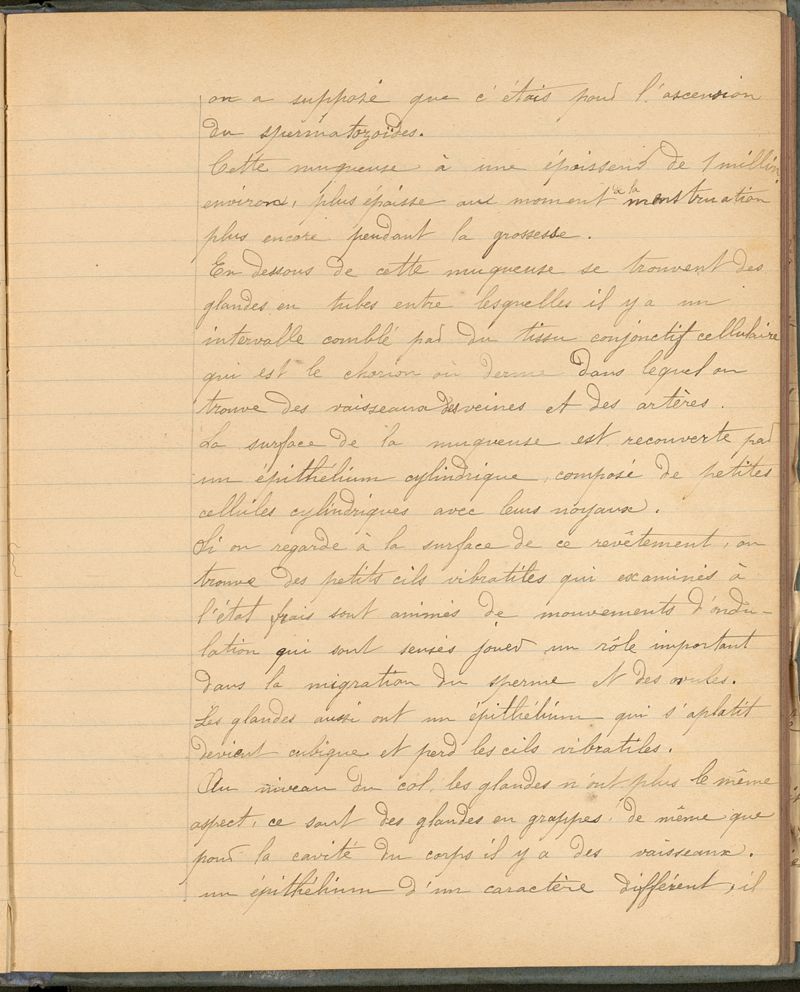 on a supposé que c'étais pour l'ascension
du spermatozoïdes.
Cette muqueuse à une épaisseur de 1 millim
environ, plus épaisse au moment de la menstruation
plus encore pendant la grossesse.
En dessous de cette muqueuse se trouvent des
glandes en tubes entre lesquelles il y a un
intervalle comblé par du tissu conjonctif cellulaire
qui est le chorion ou derme dans lequel on
trouve des vaisseaux des veines et des artères.
La surface de la muqueuse est recouverte par
un épithélium cylindrique, composé de petites
cellules cylindriques avec leurs noyaux.
Si on regarde à la surface de ce revêtement, on
trouve des petits cils vibratiles qui examinés à
l'état frais sont animés de mouvements d'ondu-
lation qui sont sensés jouer un rôle important
dans la migration du sperme et des ovules.
Les glandes aussi ont un épithélium qui s'aplatit
devient cubique et perd les cils vibratiles.
Au niveau du col, les glandes n'ont plus le même
aspect, ce sont des glandes en grappes, de même que
pour la cavité du corps il y a des vaisseaux.
un épithélium d'un caractère différent, il